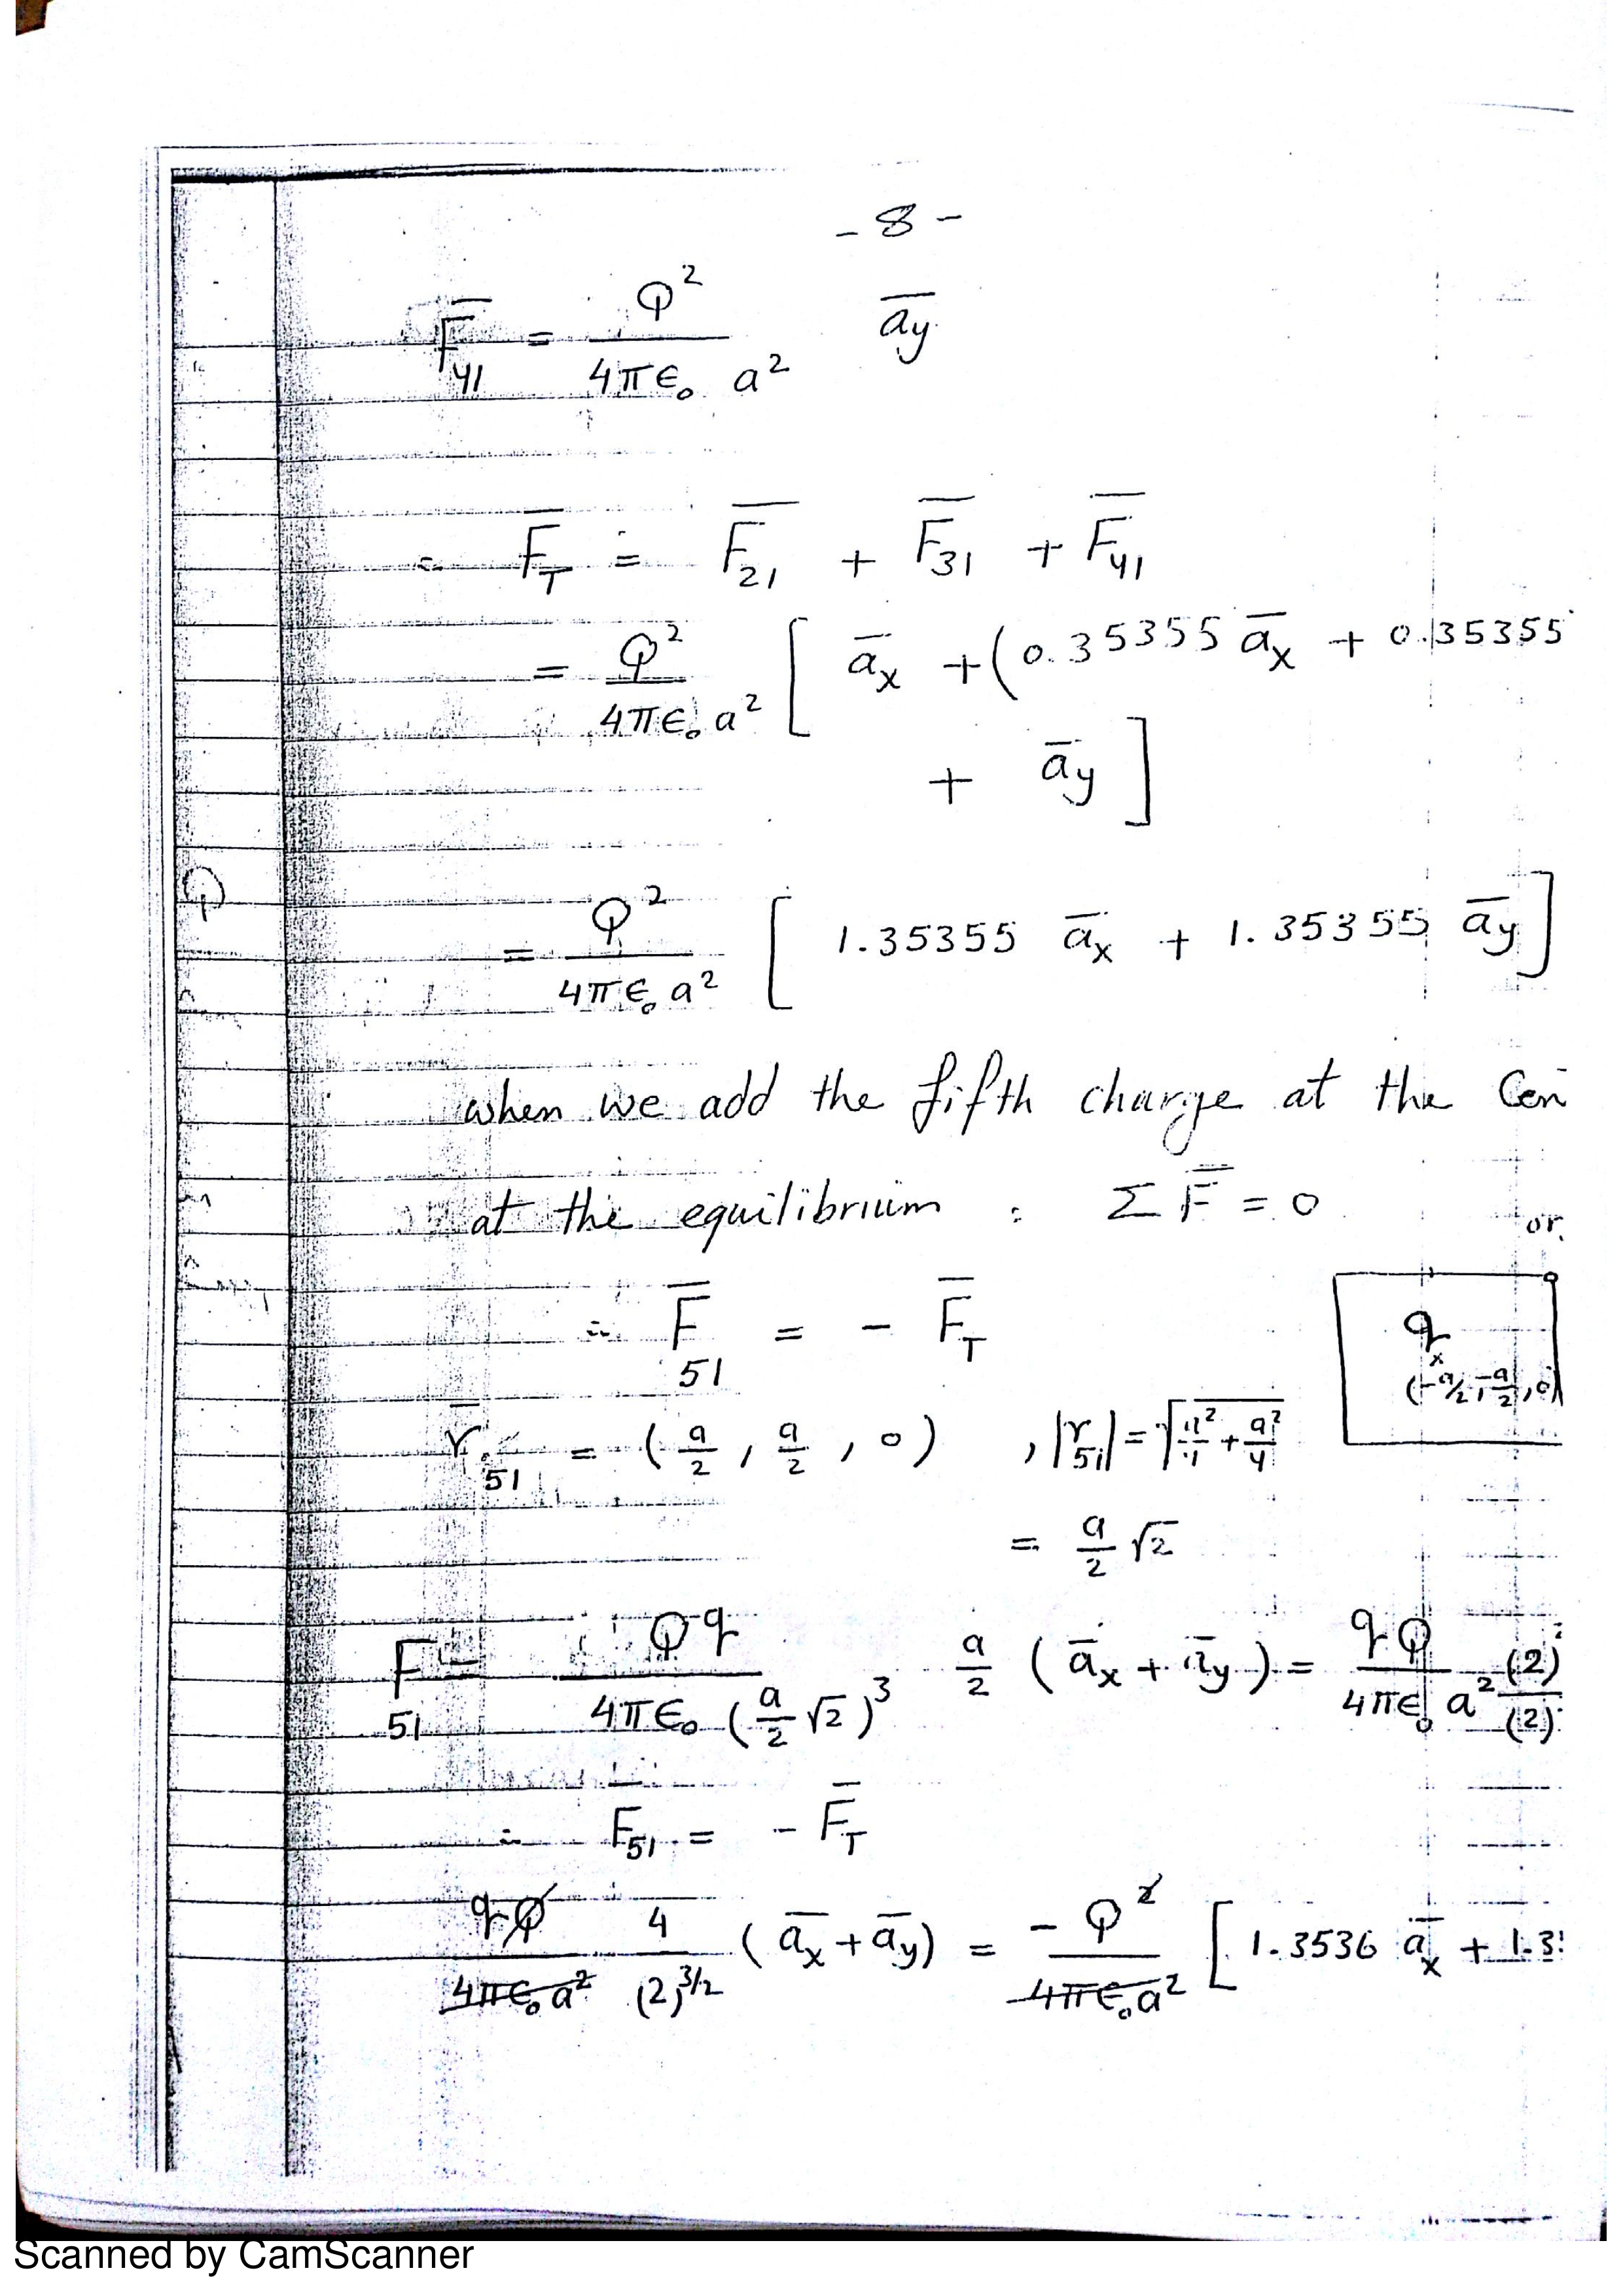 - 8 -
F̅41 = Q² / 4πϵ₀ a² a̅y
∴ F̅T = F̅21 + F̅31 + F̅41
= Q² / 4πϵ₀ a² [ a̅x + ( 0.35355 a̅x + 0.35355
+ a̅y ]
= Q² / 4πϵ₀ a² [ 1.35355 a̅x + 1.35355 a̅y ]
when we add the fifth charge at the Cen
at the equilibrium : Σ F̅ = 0 or.
∴ F̅51 = - F̅T
q
x
(-a/2, -a/2, 0)
r̅51 = ( a/2 , a/2 , 0 ) , |r51| = √(a²/4 + a²/4)
= a/2 √2
F̅51 = Qq / 4πϵ₀ (a/2 √2)³ a/2 ( a̅x + a̅y ) = qQ / 4πϵ₀ a² (2) / (2)
∴ F̅51 = - F̅T
qQ / 4πϵ₀ a² 4 / (2)^3/2 ( a̅x + a̅y ) = - Q² / 4πϵ₀ a² [ 1.3536 a̅x + 1.3
Scanned by CamScanner